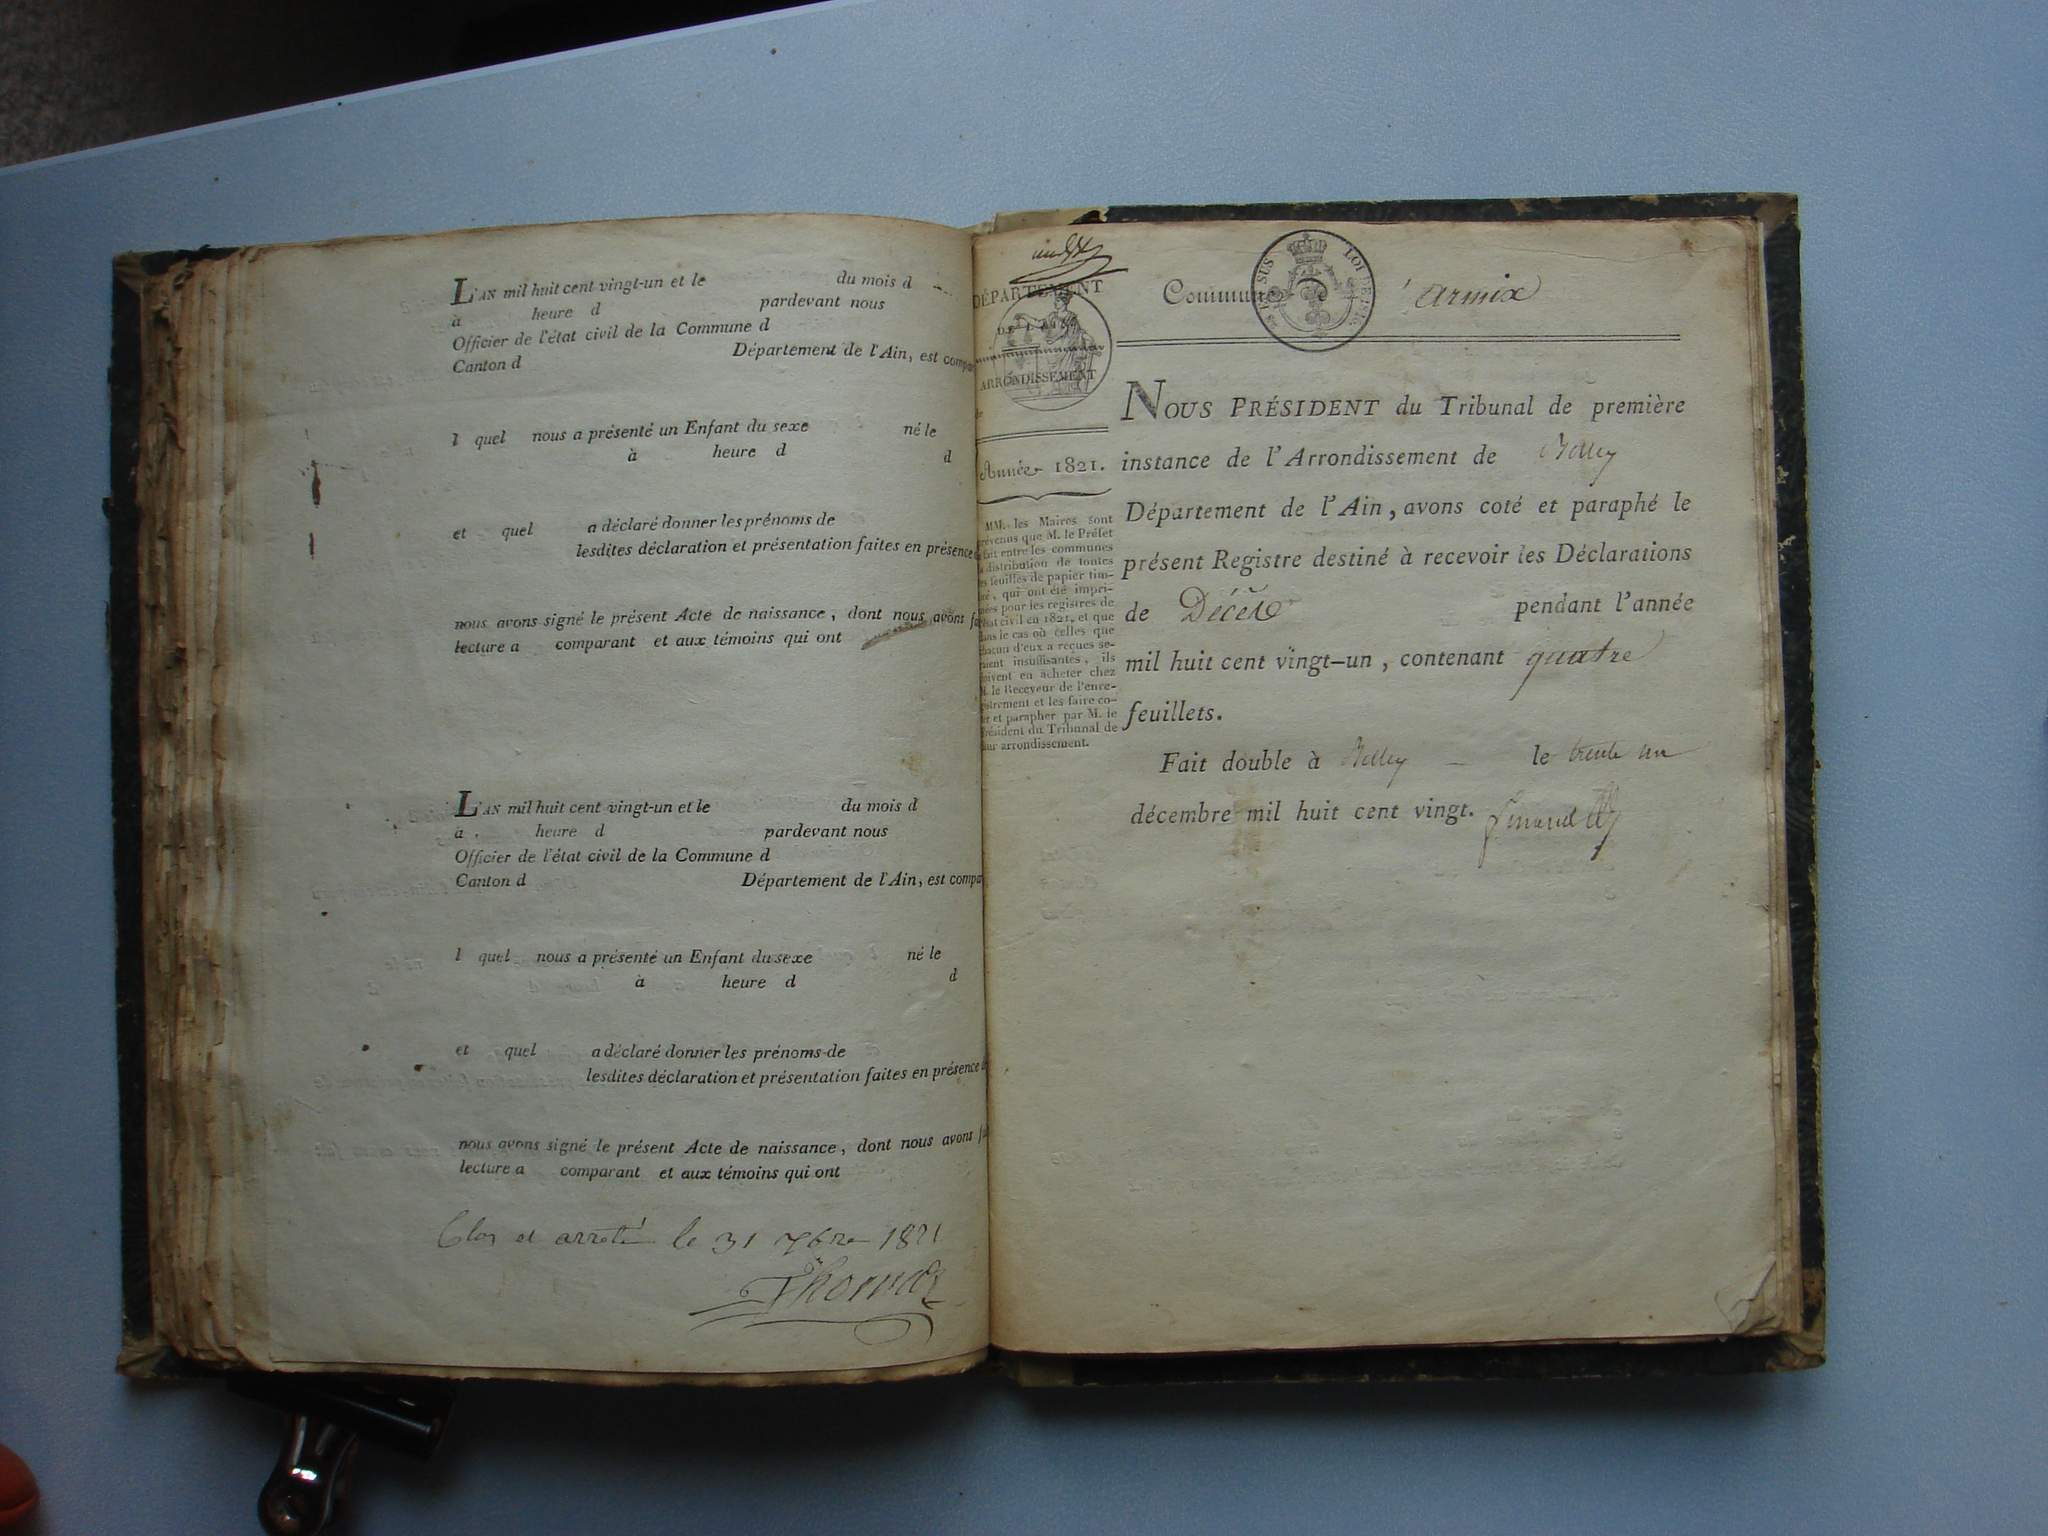 L'AN mil huit cent vingt-un et le du mois d
à heure d pardevant nous
Officier de l'état civil de la Commune d
Canton d Département de l'Ain, est compa
l quel nous a présenté un Enfant du sexe né le
à heure d d
et quel a déclaré donner les prénoms de
lesdites déclaration et présentation faites en présence
nous avons signé le présent Acte de naissance, dont nous avons fa
lecture a comparant et aux témoins qui ont
L'AN mil huit cent vingt-un et le du mois d
à heure d pardevant nous
Officier de l'état civil de la Commune d
Canton d Département de l'Ain, est compa
l quel nous a présenté un Enfant du sexe né le
à heure d d
et quel a déclaré donner les prénoms de
lesdites déclaration et présentation faites en présence
nous avons signé le présent Acte de naissance, dont nous avons f
lecture a comparant et aux témoins qui ont
Clos et arreté le 31 Xbre 1821
Thomas
DÉPARTEMENT
DE L'AIN
ARRONDISSEMENT
de
Année 1821.
MM. les Maires sont
prévenus que M. le Préfet
fait entre les communes
la distribution de toutes
les feuilles de papier tim-
bré, qui ont été impri-
mées pour les registres de
l'état civil en 1821, et que
dans le cas où celles que
chacun d'eux a reçues se-
raient insuffisantes, ils
doivent en acheter chez
M. le Receveur de l'enre-
gistrement et les faire co-
ter et parapher par M. le
Président du Tribunal de
leur arrondissement.
Commune d'armix
LOI DE 1816
NOUS PRÉSIDENT du Tribunal de première
instance de l'Arrondissement de Belley
Département de l'Ain, avons coté et paraphé le
présent Registre destiné à recevoir les Déclarations
de Décès pendant l'année
mil huit cent vingt-un, contenant quatre
feuillets.
Fait double à Belley le trente un
décembre mil huit cent vingt.